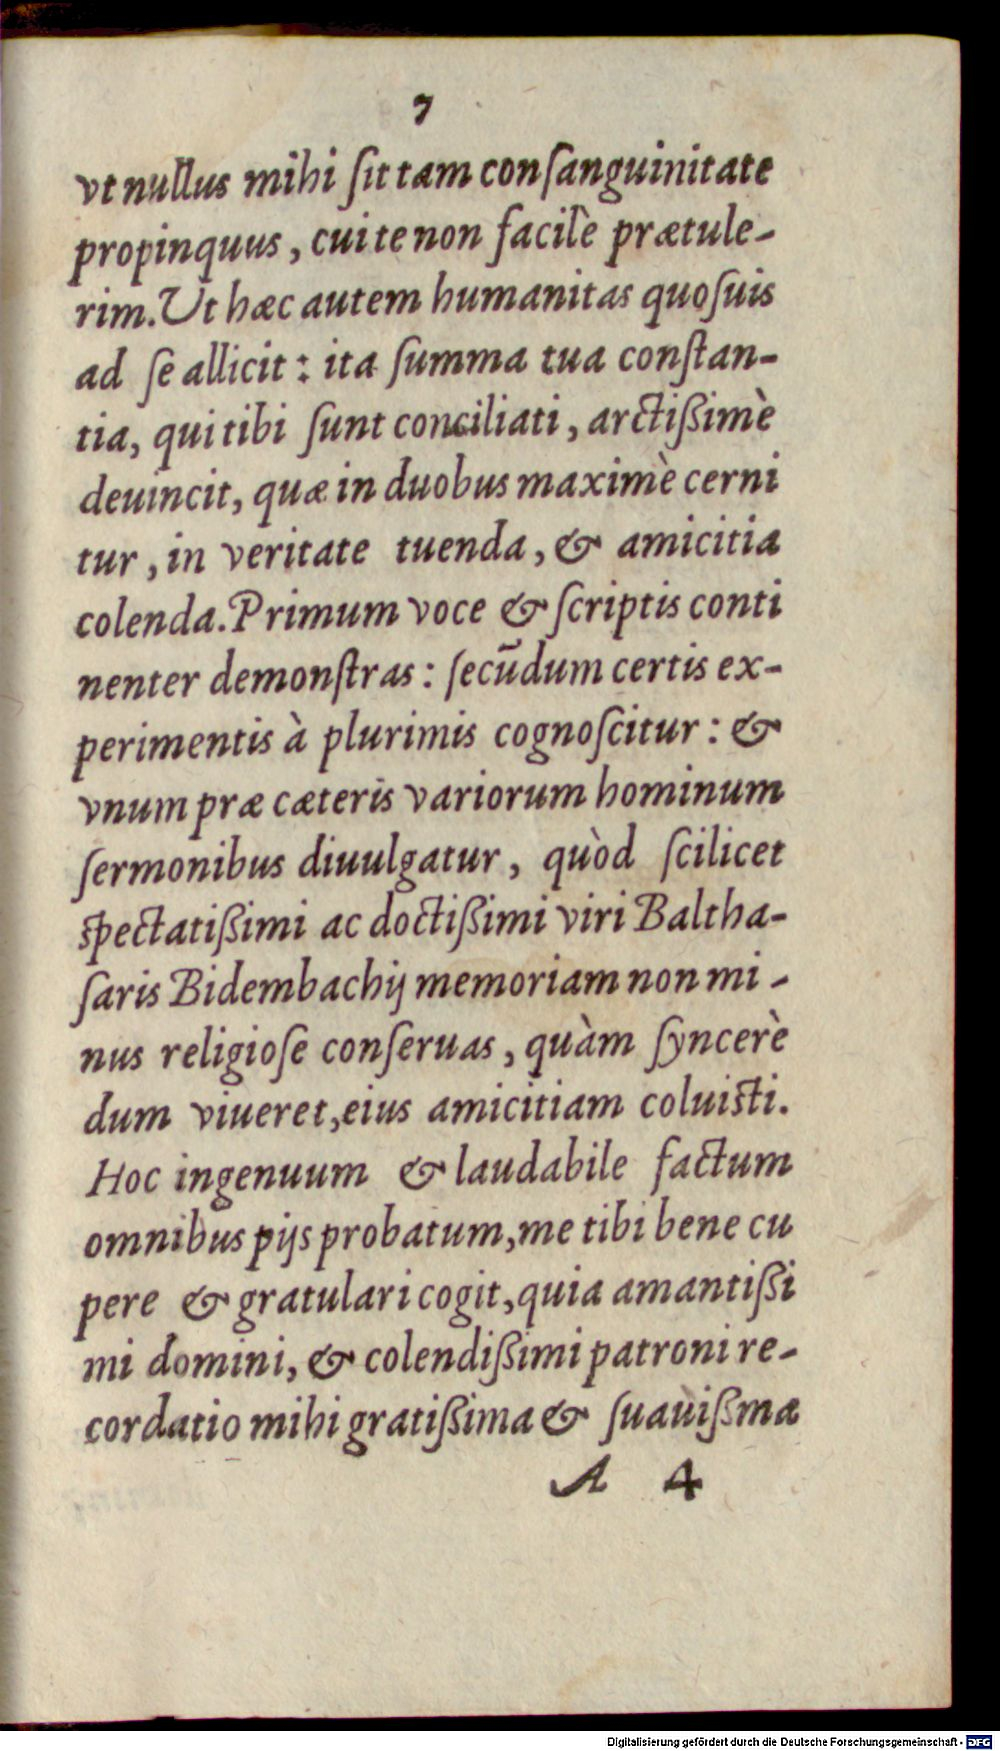 7
vt nullus mihi ſit tam conſanguinitate
propinquus, cui te non facilè prætule-
rim. Ut hæc autem humanitas quoſuis
ad ſe allicit: ita ſumma tua conſtan-
tia, qui tibi ſunt conciliati, arctißimè
deuincit, quæ in duobus maximè cerni
tur, in veritate tuenda, & amicitia
colenda. Primum voce & ſcriptis conti
nenter demonſtras: ſecūdum certis ex-
perimentis à plurimis cognoſcitur: &
vnum præ cæteris variorum hominum
ſermonibus diuulgatur, quòd ſcilicet
ſpectatißimi ac doctißimi viri Baltha-
ſaris Bidembachij memoriam non mi-
nus religioſe conſeruas, quàm ſyncerè
dum viueret, eius amicitiam coluiſti.
Hoc ingenuum & laudabile factum
omnibus pijs probatum, me tibi bene cu
pere & gratulari cogit, quia amantißi
mi domini, & colendißimi patroni re-
cordatio mihi gratißima & ſuauißma
A 4
Digitalisierung gefördert durch die Deutsche Forschungsgemeinschaft - DFG